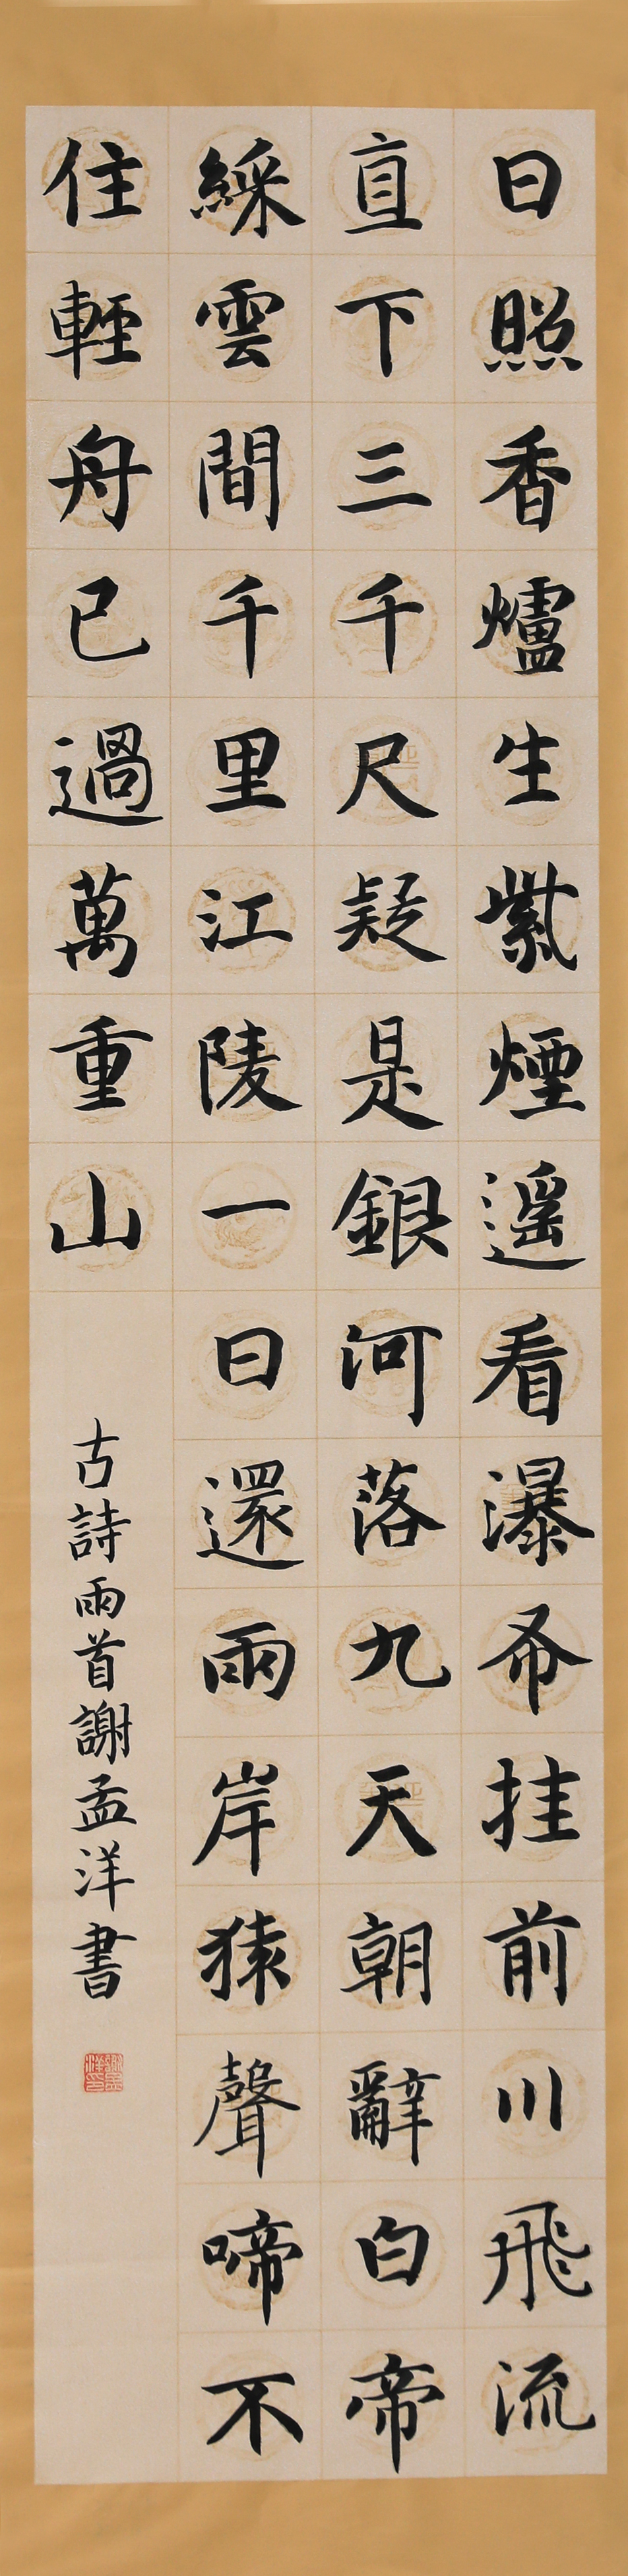 日照香爐生紫煙遥看瀑布挂前川飛流
直下三千尺疑是銀河落九天朝辭白帝
綵雲間千里江陵一日還兩岸猿聲啼不
住輕舟已過萬重山
古詩兩首謝孟洋書